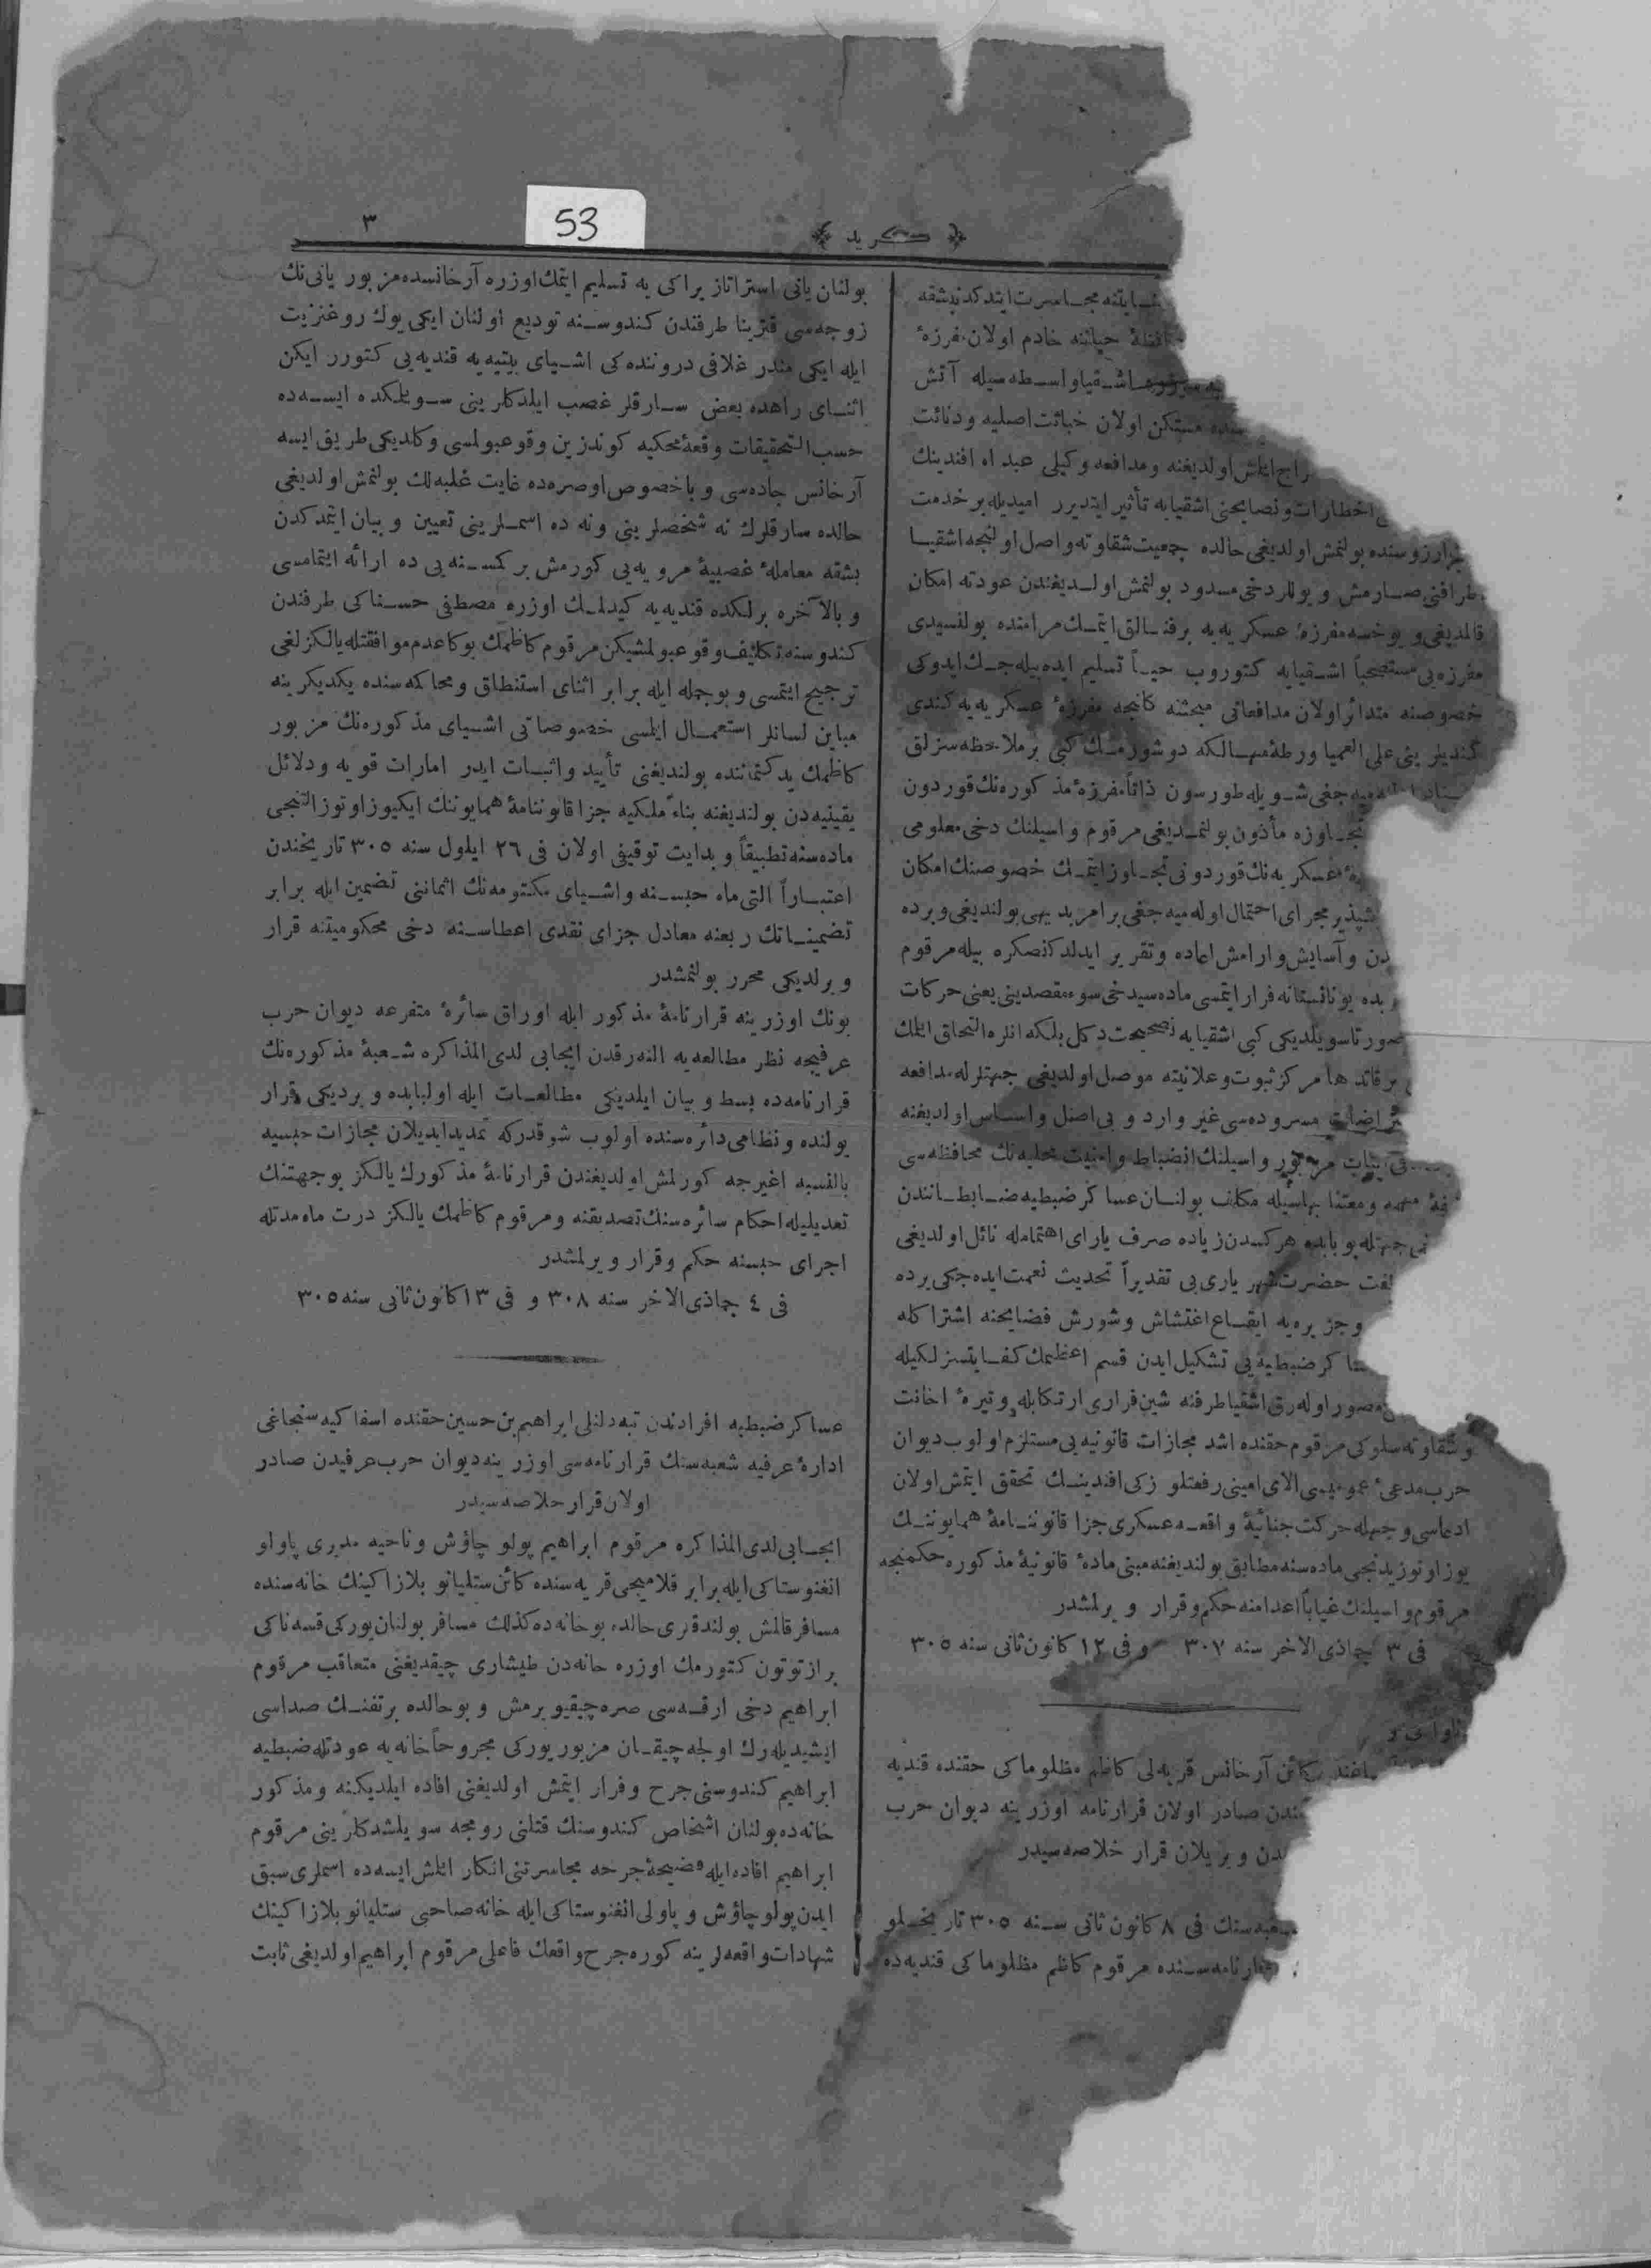 53
٣
كريد
جنايتنه مجاسرت ايتدكدنبشقه
حياتنه خادم اولان مفرزهٔ
اشقياواسطه سيله آتش
مستكن اولان خباثت اصليه ودنائت
ايتمش اولديغنه ومدافعه وكيلى عبد الله افندينك
اخطارات ونصايحنى اشقيايه تأثير ايتديرر اميديله بر خدمت
آرزوسنده بولنمش اولديغى حالده جمعيت شقاوته واصل اولنجه اشقيا
طرافنى صارمش و يوللر دخى مسدود بولنمش اولديغندن عودته امكان
قالمديغى و يوخسه مفرزهٔ عسكريه يه بر فنالق ايتمك مرامنده بولنسيدى
مفرزه يى مستصحباً اشقيايه كتوروب حياً تسليم ايده بيله جك ايدوكى
خصوصنه متدائر اولان مدافعاتى مبحثنه كلنجه مفرزهٔ عسكريه يه كندى
كنديلرينى على العميا ورطهٔ مهالكه دوشورمك كبى بر ملاحظه سزلق
جغى شويله طورسون ذاتاً مفرزهٔ مذكوره نك قوردون
تجاوزه مأذون بولنمديغى مرقوم واسيلنك دخى معلومى
عسكريه نك قوردونى تجاوز ايتمك خصوصنك امكان
پذير مجراى احتمال اوله ميه جغى بر امر بديهى بولنديغى و برده
وآسايش وآرامش اعاده وتقرير ايدلدكدنصكره بيله مرقوم
يونانستانه فرار ايتمسى ماده سيدخى سوءمقصدينى يعنى حركات
سويلديكى كبى اشقيايه نصيحت دكل بلكه انلره التحاق ايلمك
مركز ثبوت وعلانيته موصل اولديغى جهتلرله مدافعه
مسروده سى غير وارد و بى اصل واساس اولديغنه
مزبور واسيلنك انضباط وامنيت محليه نك محافظه سى
ومعتنا بهاسيله مكلف بولنان عساكر ضبطيه ضابطانندن
جهتله بو بابده هركسدن زياده صرف ياراى اهتمامله نائل اولديغى
حضرت شهرياری يى تقديراً تحديث نعمت ايده جكى برده
وجزيره يه ايقاع اغتشاش وشورش فضايحنه اشتراكله
عساكر ضبطيه يى تشكيل ايدن قسم اعظمك كفايتسزلكيله
اوله رق اشقيا طرفنه شين فرارى ارتكابله وتيرهٔ اخانت
وشقاوته سلوكى مرقوم حقنده اشد مجازات قانونيه يى مستلزم اولوب ديوان
حرب مدعىٔ عموميسى آلاى امينى رفعتلو زكى افندينك تحقق ايتمش اولان
ادعاسى وجهله حركت جنائيهٔ واقعه عسكرى جزا قانوننامهٔ همايوننك
يوز اوتوز يدنجى ماده سنه مطابق بولنديغنه مبنى مادهٔ قانونيهٔ مذكوره حكمنجه
مرقوم واسيلنك غياباً اعدامنه حكم وقرار ويرلمشدر
فى ٣ جماذى الاخر سنه ٣٠٧ و فى ١٢ كانون ثانى سنه ٣٠٥
كائن آرخانس قريه لى كاظم مظلوماكى حقنده قنديه
صادر اولان قرارنامه اوزرينه ديوان حرب
ويريلان قرار خلاصه سيدر
شعبه سنك فى ٨ كانون ثانى سنه ٣٠٥ تاريخلو
قرارنامه سنده مرقوم كاظم مظلوماكى قنديه ده
بولنان يانى استراتاز يراكى يه تسليم ايتمك اوزره آرخانسده مزبور يانى نك
زوجه سى قتريـنا طرفندن كندوسنه توديع اولنان ايكى يوك روغنزيت
ايله ايكى مندر غلافى دروننده كى اشياى بيتيه يه قنديه يى كتورر ايكن
اثناى راهده بعض سارقلر غصب ايلدكلرينى سويلمكده ايسه ده
حسب التحقيقات وقعهٔ محكيه كوندزين وقوعبولمسى وكلديكى طريق ايسه
آرخانس جاده سى و باخصوص اوصره ده غايت غلبه لك بولنمش اولديغى
حالده سارقلرك نه شخصلرينى ونه ده اسملرينى تعيين و بيان ايتمدكدن
بشقه معاملهٔ غصبيهٔ مرويه يى كورمش بر كمسنه يى ده ارائه ايتمامسى
و بالآخره برلكده قنديه يه كيدلمك اوزره مصطفى حسناكى طرفندن
كندوسنه تكاليف وقوعبولمشيكن مرقوم كاظمك بوكا عدم موافقتله يالكزلغى
ترجيح ايتمسى و بو جمله ايله برابر اثناى استنطاق ومحاكمه سنده يكديكرينه
مباين لسانلر استعمال ايلمسى خصوصاتى اشياى مذكوره نك مزبور
كاظمك يد كتماننده بولنديغنى تأييد واثبات ايدر امارات قويه ودلائل
يقينيه دن بولنديغنه بناءً ملكيه جزا قانوننامهٔ همايوننك ايكيوز اوتوز التنجى
ماده سنه تطبيقاً و بدايت توقيفى اولان فى ٢٦ ايلول سنه ٣٠٥ تاريخندن
اعتباراً التى ماه حبسنه واشياى مكتومه نك اثماننى تضمين ايله برابر
تضميناتك ربعنه معادل جزاى نقدى اعطاسنه دخى محكوميتنه قرار
ويرلديكى محرر بولنمشدر
بونك اوزرينه قرارنامهٔ مذكور ايله اوراق سائرهٔ متفرعه ديوان حرب
عرفيجه نظر مطالعه يه النه رقدن ايجابى لدى المذاكره شعبهٔ مذكوره نك
قرارنامه ده بسط و بيان ايلديكى مطالعات ايله اولبابده ويرديكى قرار
يولنده ونظامى دائره سنده اولوب شو قدركه تمديد ايديلان مجازات حبسيه
بالنسبه اغيرجه كورلمش اولديغندن قرارنامهٔ مذكورك يالكز بو جهتنك
تعديليله احكام سائره سنك تصديقنه ومرقوم كاظمك يالكز درت ماه مدتله
اجراى حبسنه حكم وقرار ويرلمشدر
فى ٤ جماذى الاخر سنه ٣٠٨ و فى ١٣ كانون ثانى سنه ٣٠٥
عساكر ضبطيه افرادندن تبه دلنلى ابراهيم بن حسين حقنده اسفاكيه سنجاغى
ادارهٔ عرفيه شعبه سنك قرارنامه سى اوزرينه ديوان حرب عرفيدن صادر
اولان قرار خلاصه سيدر
ايجابى لدى المذاكره مرقوم ابراهيم پولو چاؤش وناحيه مديرى پاولو
انغنوستاكى ايله برابر قلاميجى قريه سنده كائن ستليانو بلازاكينك خانه سنده
مسافر قالمش بولندقلرى حالده بو خانه ده كذلك مسافر بولنان يوركى قسه ناكى
براز توتون كتورمك اوزره خانه دن طيشارى چيقديغنى متعاقب مرقوم
ابراهيم دخى ارقه سى صره چيقيويرمش و بو حالده بر تفنك صداسى
ايشيديله رك اولجه چيقان مزبور يوركى مجروحاً خانه يه عودتله ضبطيه
ابراهيم كندوسنى جرح وفرار ايتمش اولديغنى افاده ايلديكنه ومذكور
خانه ده بولنان اشخاص كندوسنك قتلنى رومجه سويلشدكلرينى مرقوم
ابراهيم افاده ايله فضيحهٔ جرحه مجاسرتنى انكار ايلمش ايسه ده اسملرى سبق
ايدن پولو چاؤش و پاولى انغنوستاكى ايله خانه صاحبى ستليانو بلازاكينك
شهادات واقعه لرينه كوره جرح واقعك فاعلى مرقوم ابراهيم اولديغى ثابت